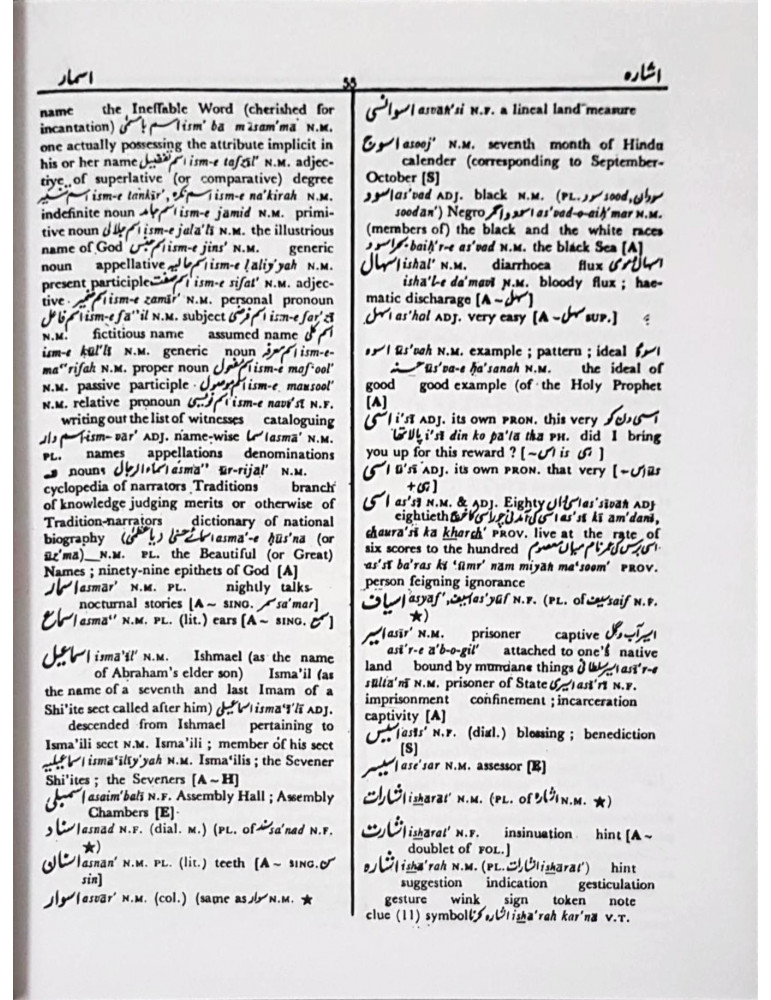 اسمار
55
اشارہ
name the Ineffable Word (cherished for
incantation) اسم بامسمّیٰ ism' ba masam'ma N.M.
one actually possessing the attribute implicit in
his or her name اسم تفضیل ism-e tafzīl' N.M. adjec-
tive of superlative (or comparative) degree
اسم تنکیر ism-e tankir', اسم نکرہ ism-e na'kirah N.M.
indefinite noun اسم جامد ism-e jamid N.M. primi-
tive noun اسم جلالی ism-e jala'li N.M. the illustrious
name of God اسم جنس ism-e jins' N.M. generic
noun appellative اسم حالیہ ism-e ḥaliy'yah N.M.
present participle اسم صفت ism-e sifat' N.M. adjec-
tive اسم ضمیر ism-e zamīr' N.M. personal pronoun
اسم فاعل ism-e fa''il N.M. subject اسم فرضی ism-e far'zī
N.M. fictitious name assumed name اسم کلی
ism-e kul'li N.M. generic noun اسم معرفہ ism-e-
ma''rifah N.M. proper noun اسم مفعول ism-e maf'ool'
N.M. passive participle اسم موصول ism-e mausool'
N.M. relative pronoun اسم نویسی ism-e navi'sī N.F.
writing out the list of witnesses cataloguing
اسم وار ism-var' ADJ. name-wise اسما asma' N.M.
PL. names appellations denominations
nouns اسماء الرجال asma'' ür-rijal' N.M.
cyclopedia of narrators Traditions branch
of knowledge judging merits or otherwise of
Tradition-narrators dictionary of national
biography اسمائے حسنیٰ (یا عظمیٰ) asma'-e ḥüs'na (or
üz'ma) N.M. PL. the Beautiful (or Great)
Names ; ninety-nine epithets of God [A]
اسمار asmar' N.M. PL. nightly talks
nocturnal stories [A ~ SING. سمر sa'mar]
اسماع asma'' N.M. PL. (lit.) ears [A ~ SING. سمع]
اسماعیل isma'īl' N.M. Ishmael (as the name
of Abraham's elder son) Isma'il (as
the name of a seventh and last Imam of a
Shi'ite sect called after him) اسماعیلی isma'ī'lī ADJ.
descended from Ishmael pertaining to
Isma'ili sect N.M. Isma'ili ; member of his sect
اسماعیلیہ isma'īliy'yah N.M. Isma'ilis ; the Sevener
Shi'ites ; the Seveners [A ~ H]
اسمبلی asaim'bali N.F. Assembly Hall ; Assembly
Chambers [E]
اسناد asnad N.F. (dial. M.) (PL. of سند sa'nad N.F.
★)
اسنان asnan' N.M. PL. (lit.) teeth [A ~ SING. سن
sin]
اسوار asvar' N.M. (col.) (same as سوار N.M. ★
اسوانسی asvaṅ'si N.F. a lineal land measure
اسوج asooj' N.M. seventh month of Hindu
calender (corresponding to September-
October [S]
اسود as'vad ADJ. black N.M. (PL. سود sood, سودان
soodan') Negro اسود و احمر as'vad-o-aiḥ'mar N.M.
(members of) the black and the white races
بحر اسود baiḥ'r-e as'vad N.M. the black Sea [A]
اسہال ishal' N.M. diarrhoea flux اسہال دموی
isha'l-e da'mavi N.M. bloody flux ; hae-
matic discharage [A ~ سہل]
اسہل as'hol ADJ. very easy [A ~ سہل SUP.]
اسوہ üs'vah N.M. example ; pattern ; ideal اسوۂ
حسنہ üs'va-e ḥa'sanah N.M. the ideal of
good good example (of the Holy Prophet
[A]
اسی i'sī ADJ. its own PRON. this very اسی دن کو
پالا تھا i'sī din ko pa'la tha PH. did I bring
you up for this reward ? [~ اس is + ہی]
اسی ü'sī ADJ. its own PRON. that very [~ اس üs
+ ہی]
اسی as'sī N.M. & ADJ. Eighty اسی واں as'sivaṅ ADJ
eightieth اسی کی آمدنی چوراسی کا خرچ as'sī kī am'dani,
chaura'sī ka kharch' PROV. live at the rate of
six scores to the hundred اسی برس کی عمر نام میاں معصوم
as'sī ba'ras kī 'ümr' nam miyaṅ ma'soom' PROV.
person feigning ignorance
اسیاف asyaf', اسیف as'yüf N.F. (PL. of سیف saif N.F.
★)
اسیر asīr' N.M. prisoner captive اسیر آب و گل
asī'r-e a'b-o-gil' attached to one's native
land bound by mundane things اسیر سلطانی asī'r-e
sülta'nī N.M. prisoner of State اسیری asī'rī N.F.
imprisonment confinement ; incarceration
captivity [A]
اسیس asīs' N.F. (dial.) blessing ; benediction
[S]
اسیسر ase'sar N.M. assessor [E]
اشارات isharat' N.M. (PL. of اشارہ N.M. ★)
اشارت isharat' N.F. insinuation hint [A ~
doublet of FOL.]
اشارہ isha'rah N.M. (PL. اشارات isharat') hint
suggestion indication gesticulation
gesture wink sign token note
clue (11) symbol اشارہ کرنا isha'rah kar'na V.T.